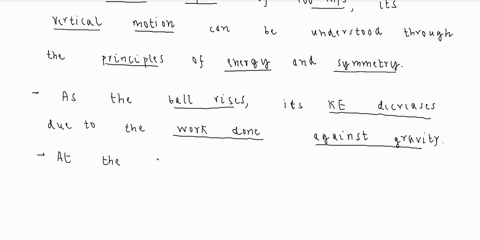 of 100 m/s, its
vertical motion can be understood through
the principles of energy and symmetry.
- As the ball rises, its KE decreases
due to the work done against gravity.
- At the